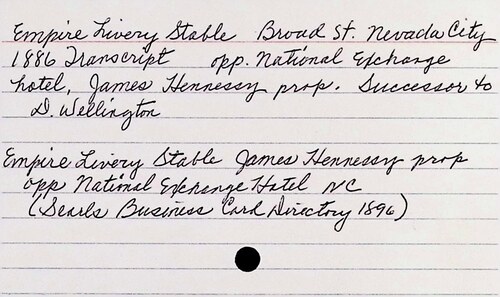 Empire Livery Stable Broad St. Nevada City
1886 Transcript opp. National Exchange
hotel, James Hennessy prop. Successor to
D. Wellington
Empire Livery Stable James Hennessy prop
opp National Exchange Hotel NC
(Searls Business Card Directory 1896)